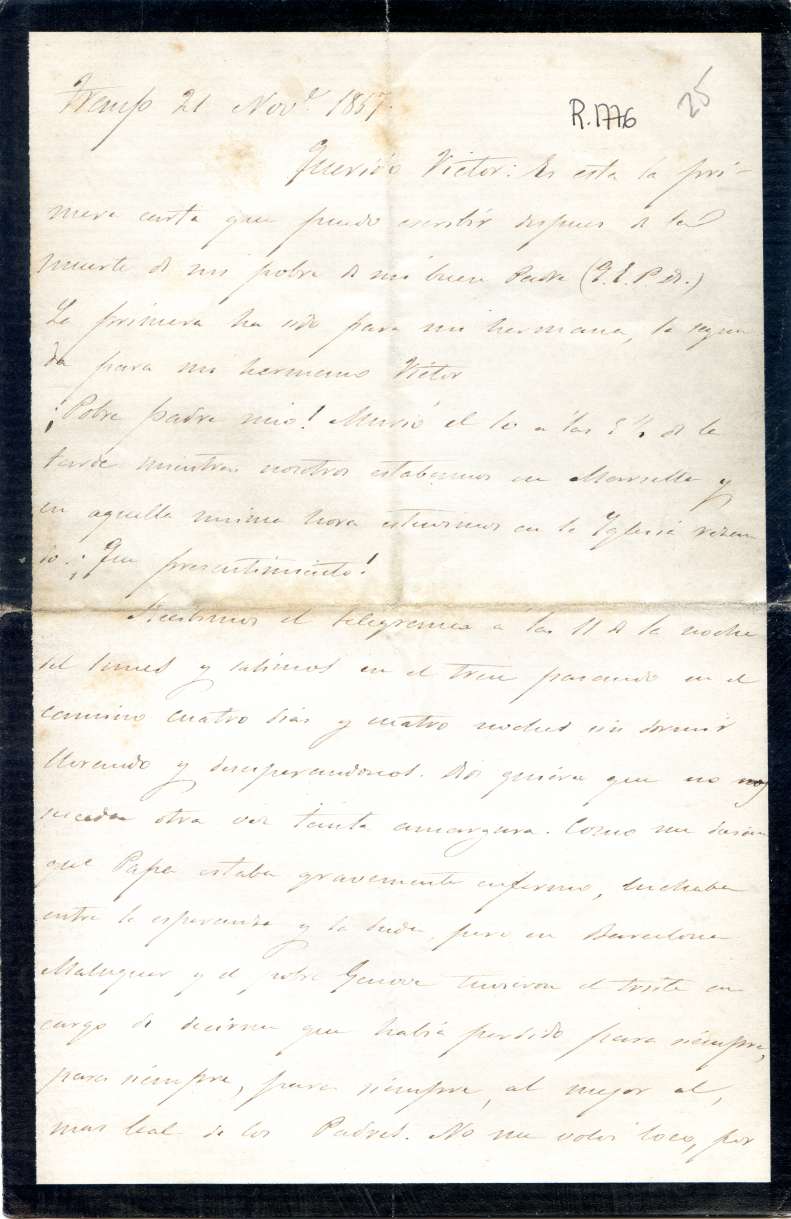 Tremp 21 Nov.e 1887.
R.1776
25
Querido Victor: Es esta la pri-
mera carta que puedo escribir despues de la
muerte de mi pobre de mi buen Padre (Q.E.P.D.)
La primera ha sido para mi hermana, la segun
da para mi hermano Victor
¡Pobre padre mio! Murió el 10 a las de la
tarde mientras nosotros estabamos en Marsella y
en aquella misma hora estuvimos en la Iglesia rezan
do. ¡Que presentimiento!
Recibimos el telegrama a las 11 de la noche
del lunes y salimos en el tren pasando en el
camino cuatro dias y cuatro noches sin dormir
llorando y desesperandonos. Dios quiera que no nos
suceda otra vez tanta amargura. Como me decian
que Papa estaba gravemente enfermo, luchaba
entre la esperanza y la duda, pero en Barcelona
Maluquer y el pobre tuvieron el triste en
cargo de decirme que habia perdido para siempre,
para siempre, para siempre, al mejor al,
mas leal de los Padres. No me volvi loco, por